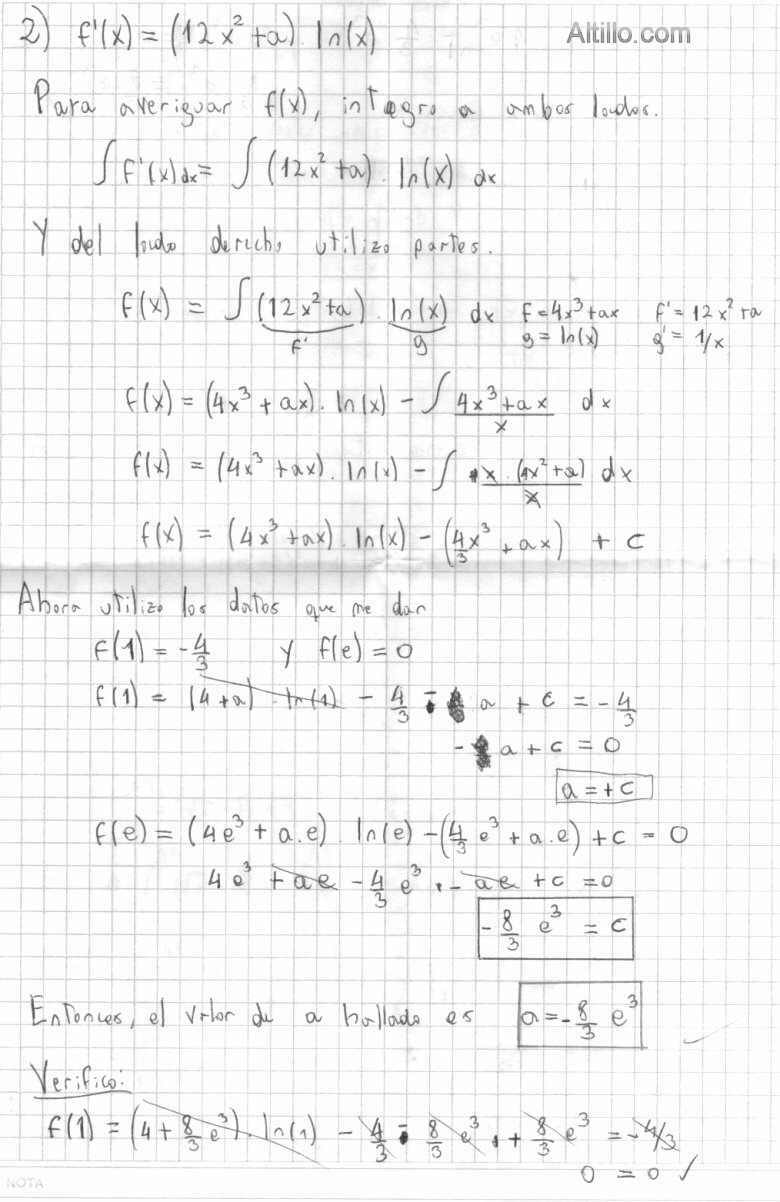 2) f'(x) = (12x² + a) . ln(x)
Altillo.com
Para averiguar f(x), integro a ambos lados.
∫ f'(x) dx = ∫ (12x² + a) . ln(x) dx
Y del lado derecho utilizo partes.
f(x) = ∫ (12x² + a) . ln(x) dx   f = 4x³ + ax   f' = 12x² + a
f'   g   g = ln(x)   g' = 1/x
f(x) = (4x³ + ax) . ln(x) - ∫ (4x³ + ax)/x dx
f(x) = (4x³ + ax) . ln(x) - ∫ x . (4x² + a)/x dx
f(x) = (4x³ + ax) . ln(x) - (4/3 x³ + ax) + c
Ahora utilizo los datos que me dan
f(1) = -4/3   y   f(e) = 0
f(1) = (4 + a) . ln(1) - 4/3 - a + c = -4/3
- a + c = 0
a = + c
f(e) = (4e³ + a.e) . ln(e) - (4/3 e³ + a.e) + c = 0
4e³ + ae - 4/3 e³ - ae + c = 0
-8/3 e³ = c
Entonces, el valor de a hallado es a = -8/3 e³
Verifico:
f(1) = (4 + 8/3 e³) . ln(1) - 4/3 - 8/3 e³ + 8/3 e³ = -4/3
0 = 0 ✓
NOTA